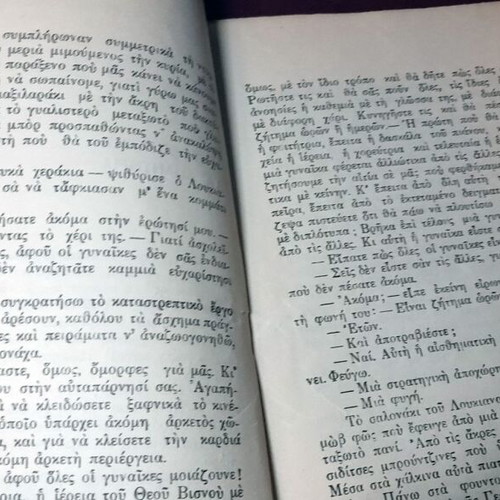 συμπλήρωναν συμμετρικὰ τὴ
μεριὰ μιμούμενος τὴν κυρία, μὲ
παράξενο ποὺ μᾶς κάνει νὰ κάνου
νὰ σωπαίνομε, γιατὶ γύρω μας
μαξιλαράκι μὲ τὴν ἄκρη τοῦ
τὸ γυαλιστερὸ μεταξωτὸ ποὺ
μπὸρ προσπαθώντας ν' ἀνακαλύψη
τὴ ποὺ θὰ τοῦ ἐμπόδιζε τὴν
υκὰ χεράκια — ψιθύρισε ὁ Λουκια
σὰ νὰ τἄφκιασαν μ' ἕνα κομμάτι
ήσατε ἀκόμα στὴν ἐρώτησί μου. —
οντας τὸ χέρι της. — Γιατὶ ἀσχολεῖ
ς, ἀφοῦ οἱ γυναῖκες δὲν σᾶς ἐνδια
δὲν ἀναζητᾶτε καμμιὰ εὐχαρίστησι
συγκρατήσω τὸ καταστρεπτικὸ ἔργο
ἀρέσουν, καθόλου τὰ ἄσχημα πράγ
ες καὶ πειράματα ν' ἀναζωογονηθῶ,
μονάχα.
αστε, ὅμως, ὄμορφες γιὰ μᾶς. Κι'
ου στὴν αὐταπάρνησί σας. Ἀγαπή
νὰ κλειδώσετε ξαφνικὰ τὸ κινέ
ὁποῖο ὑπάρχει ἀκόμη ἀρκετὸς χῶ
α, καὶ γιὰ νὰ κλείσετε τὴν καρδιὰ
κόμη ἀρκετὴ περιέργεια.
ἀφοῦ ὅλες οἱ γυναῖκες μοιάζουνε!
ἡ ἱέρεια τοῦ Θεοῦ Βισνοῦ μὲ
ὅμως, μὲ τὸν ἴδιο τρόπο καὶ θὰ δῆτε πὼς ὅλες
Ρωτῆστε τις καὶ θὰ σᾶς ποῦν ὅλες, τὶς ἴδιες
ἀνοησίες ἡ καθεμιὰ μὲ τὴ γλῶσσα της,
μὲ διάφορη χάρι. Κυνηγῆστε τις καὶ θὰ
ζήτημα ὡρῶν ἢ ἡμερῶν. Ἡ πρώτη ποὺ θὰ
ἡ φοιτήτρια, ἔπειτα ἡ δασκάλα τοῦ πιάνου,
χεία ἡ ἱέρεια, ἡ χορεύτρια καὶ τελευταία ἡ
μιὰ γυναίκα φέρεται ἀλλιώτικα ἀπὸ τὶς ἄλλες
ζητήσουμε τὴν αἰτία σὲ μᾶς ποὺ φερθήκαμε
τικα μὲ κείνην. Κ' ἔπειτα ἀπὸ ὅλη αὐτὴ
πεῖρα, ἔπειτα ἀπὸ τὸ ἐκτεταμένο δειγματ
ζεψα πιστεύετε ὅτι θὰ πάω νὰ πλουτίσω
μὲ διπλότυπα; Βρῆκα ἐπὶ τέλους μιὰ γυ
ἀπὸ τὶς ἄλλες. Κι αὐτὴ ἡ γυναίκα εἶστε
— Εἴπατε πὼς ὅλες οἱ γυναῖκες
— Σεῖς δὲν εἶστε σὰν τὶς ἄλλες, γι
ποὺ δὲν πέσατε ἀκόμα.
— Ἀκόμα; — εἶπε ἐκείνη εἰρων
τὴ φωνή του: — Εἶναι ζήτημα ὡρῶν
— Ἐτῶν.
— Καὶ ἀποτραβιέστε;
— Ναί. Αὐτὴ ἡ αἰσθηματικὴ
νει. Φεύγω.
— Μιὰ στρατηγικὴ ἀποχώρη
— Μιὰ φυγή.
Τὸ σαλονάκι τοῦ Λουκιανο
μὼβ φῶς ποὺ ἔφευγε ἀπὸ μιὰ
ταξωτὸ πανί. Ἀπὸ τὶς ἄκρες
σιδίτσες μπρούντζινες ποὺ
Μέσα στὰ χάλκινα αὐτὰ
Πάνω στὰ φουντω